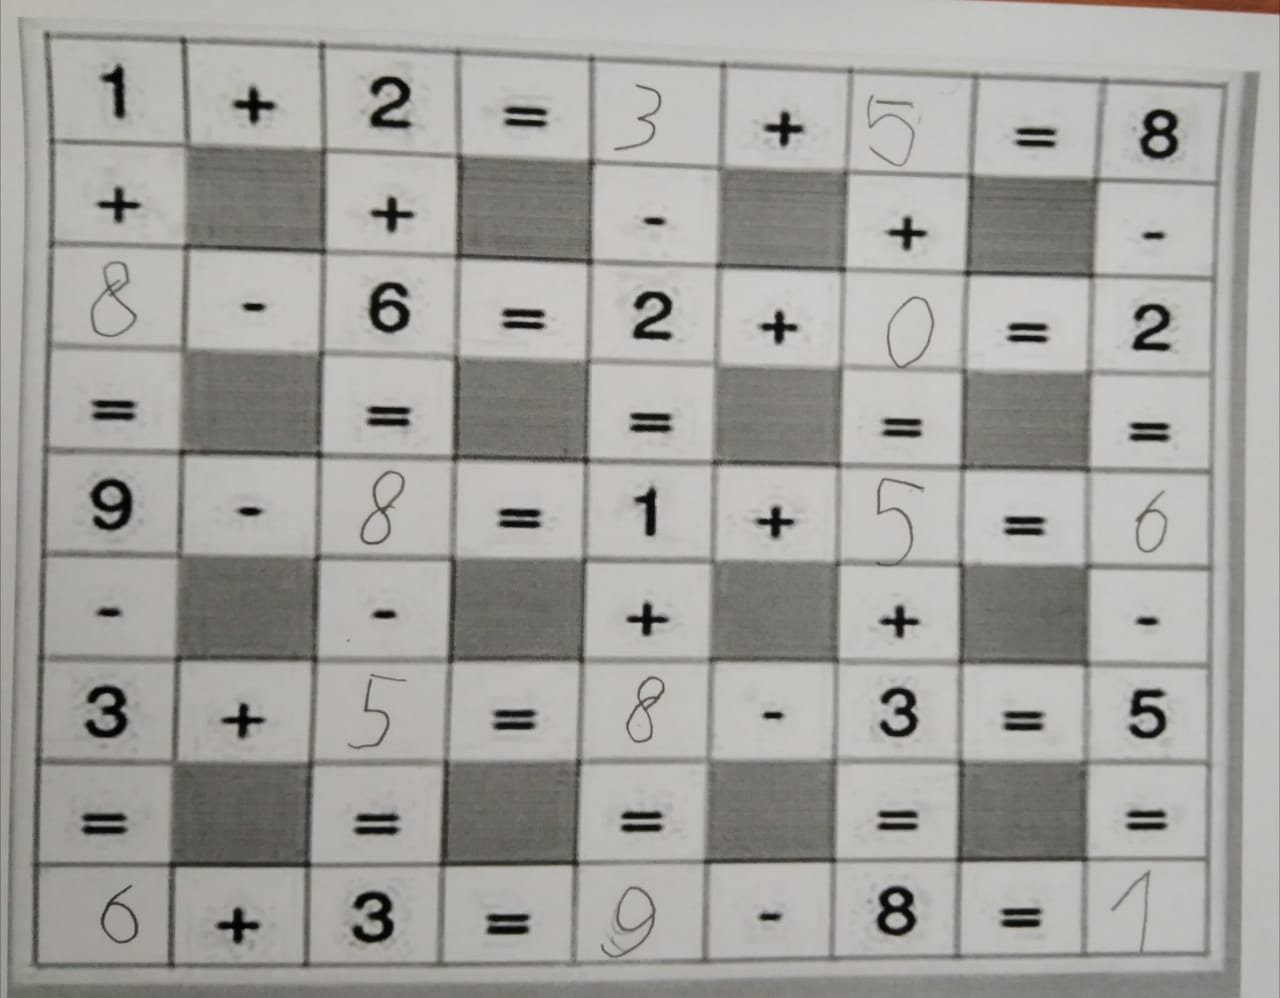 1 + 2 = 3 + 5 = 8
+ + - + -
8 - 6 = 2 + 0 = 2
= = = = =
9 - 8 = 1 + 5 = 6
- - + + -
3 + 5 = 8 - 3 = 5
= = = = =
6 + 3 = 9 - 8 = 1